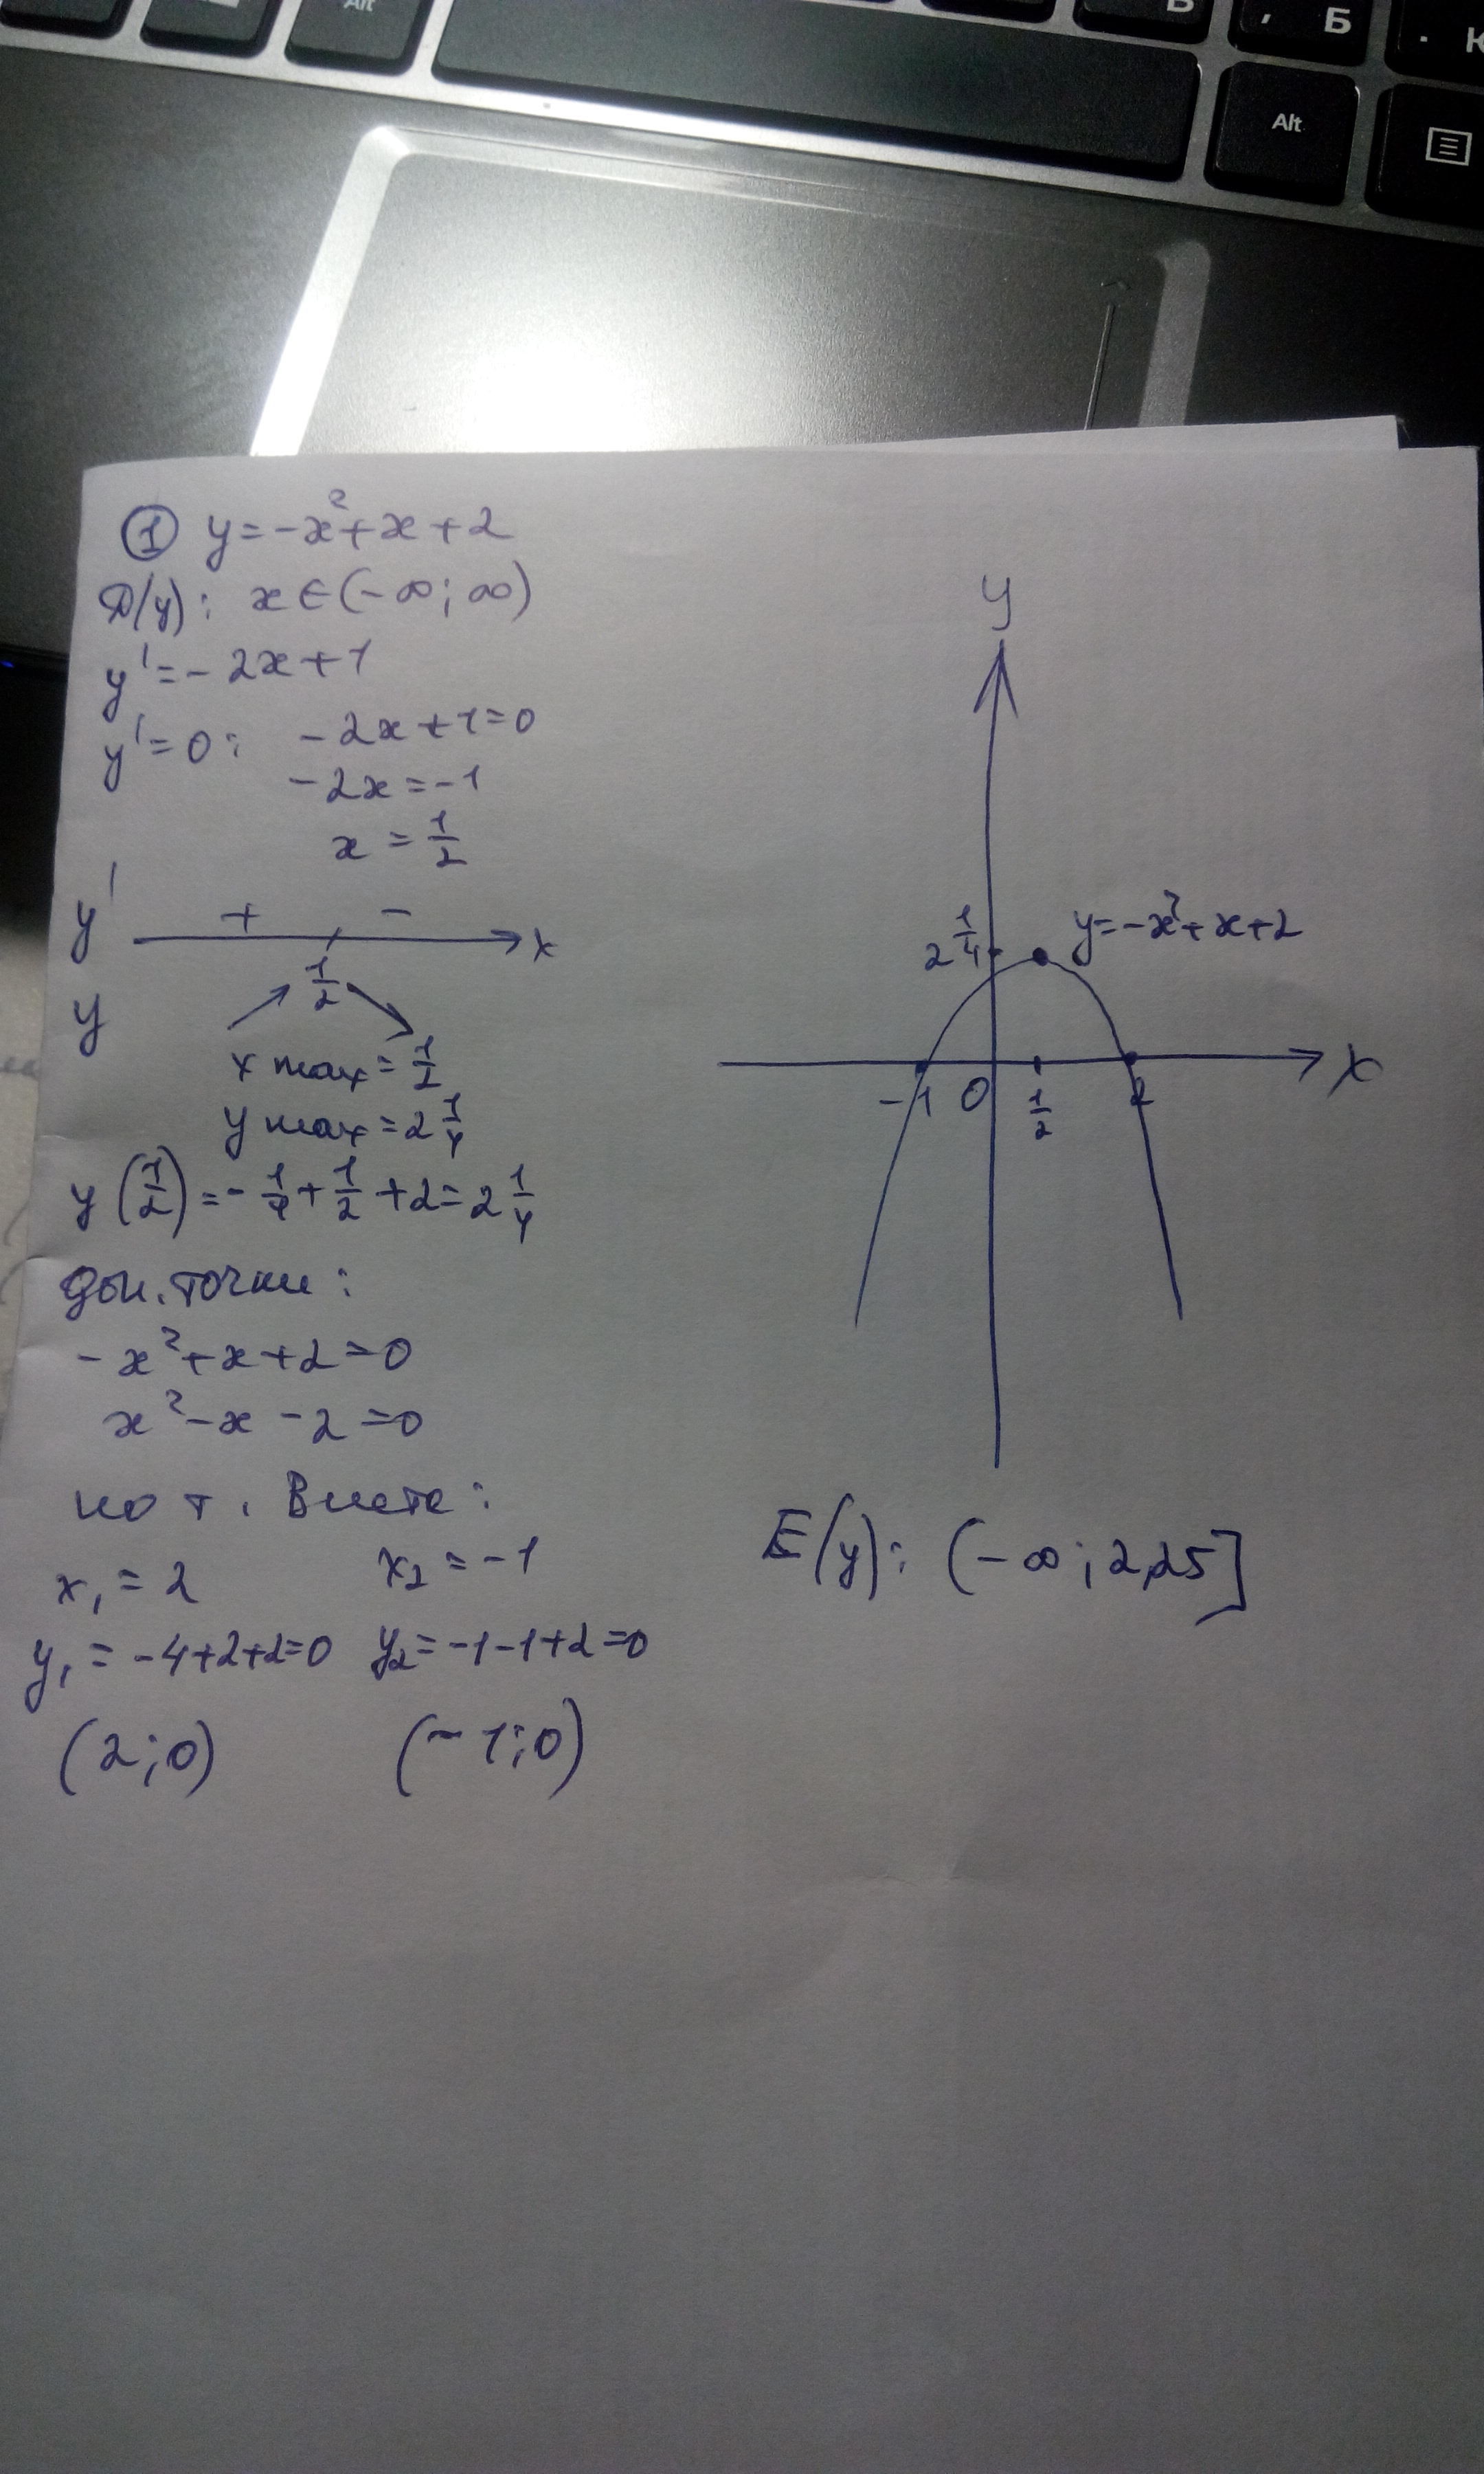 Alt
Б
Б
К
Alt
① y=-x²+x+2
D(y): x∈(-∞;∞)
y'=-2x+1
y'=0: -2x+1=0
-2x=-1
x=1/2
y' + - x
1/2
y
x max=1/2
y max=2 1/4
y(1/2)=-1/4+1/2+2=2 1/4
доп. точки:
-x²+x+2=0
x²-x-2=0
по т. Виета:
x₁=2 x₂=-1
y₁=-4+2+2=0 y₂=-1-1+2=0
(2;0) (-1;0)
y
2 1/4 y=-x²+x+2
-1 0 1/2 2 x
E(y): (-∞;2,25]